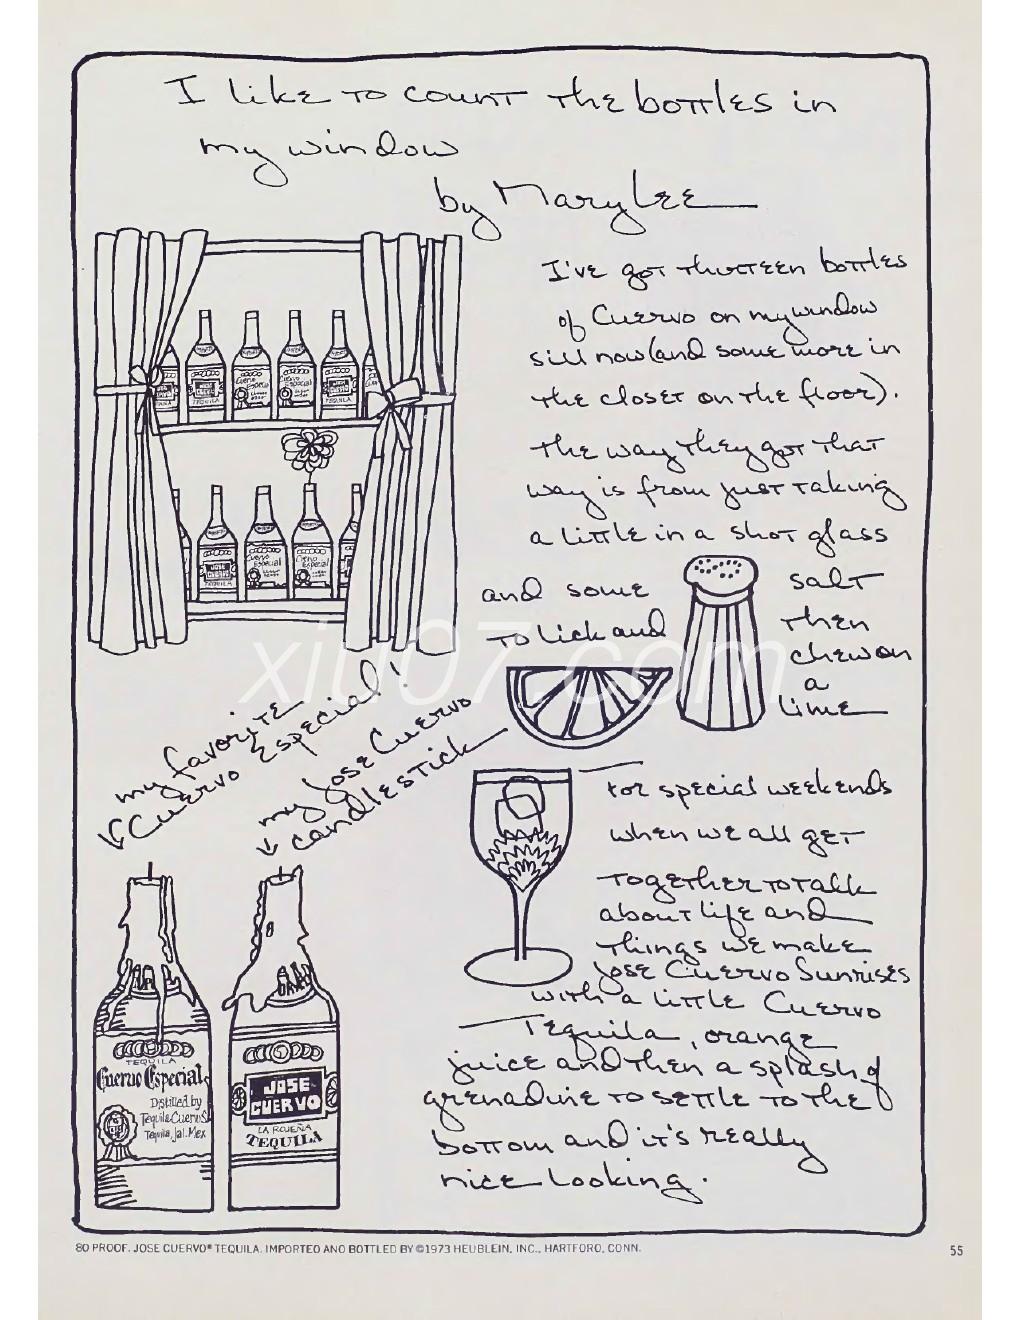 I like to count the bottles in
my window
by Mary Lee
I've got thirteen bottles
of Cuervo on my window
sill now (and some more in
the closet on the floor).
The way they got that
way is from just taking
a little in a shot glass
and some salt
to lick and then
chew on
a
lime
my favorite
Cuervo Especial!
my Jose Cuervo
candlestick
For special weekends
when we all get
together to talk
about life and
things we make
Jose Cuervo Sunrises
with a little Cuervo
Tequila, orange
juice and then a splash of
grenadine to settle to the
bottom and it's really
nice looking.
TEQUILA
Cuervo Especial
Distilled by
Tequila Cuervo S.
Tequila, Jal. Mex
JOSE
CUERVO
LA ROJEÑA
TEQUILA
xiu07.com
80 PROOF. JOSE CUERVO® TEQUILA. IMPORTED AND BOTTLED BY ©1973 HEUBLEIN, INC., HARTFORD, CONN.
55